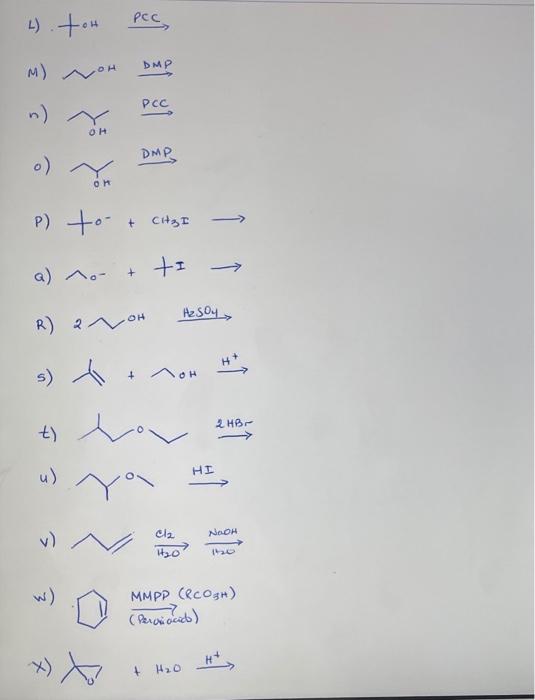 L) OH PCC
M) OH DMP
n) OH PCC
o) OH DMP
P) O- + CH3I
Q) O- + I
R) 2 OH H2SO4
S) + OH H+
t) O 2 HBr
u) O HI
v) Cl2 H2O NaOH H2O
w) MMPP (RCO3H)
(Peroxiacids)
x) O + H2O H+